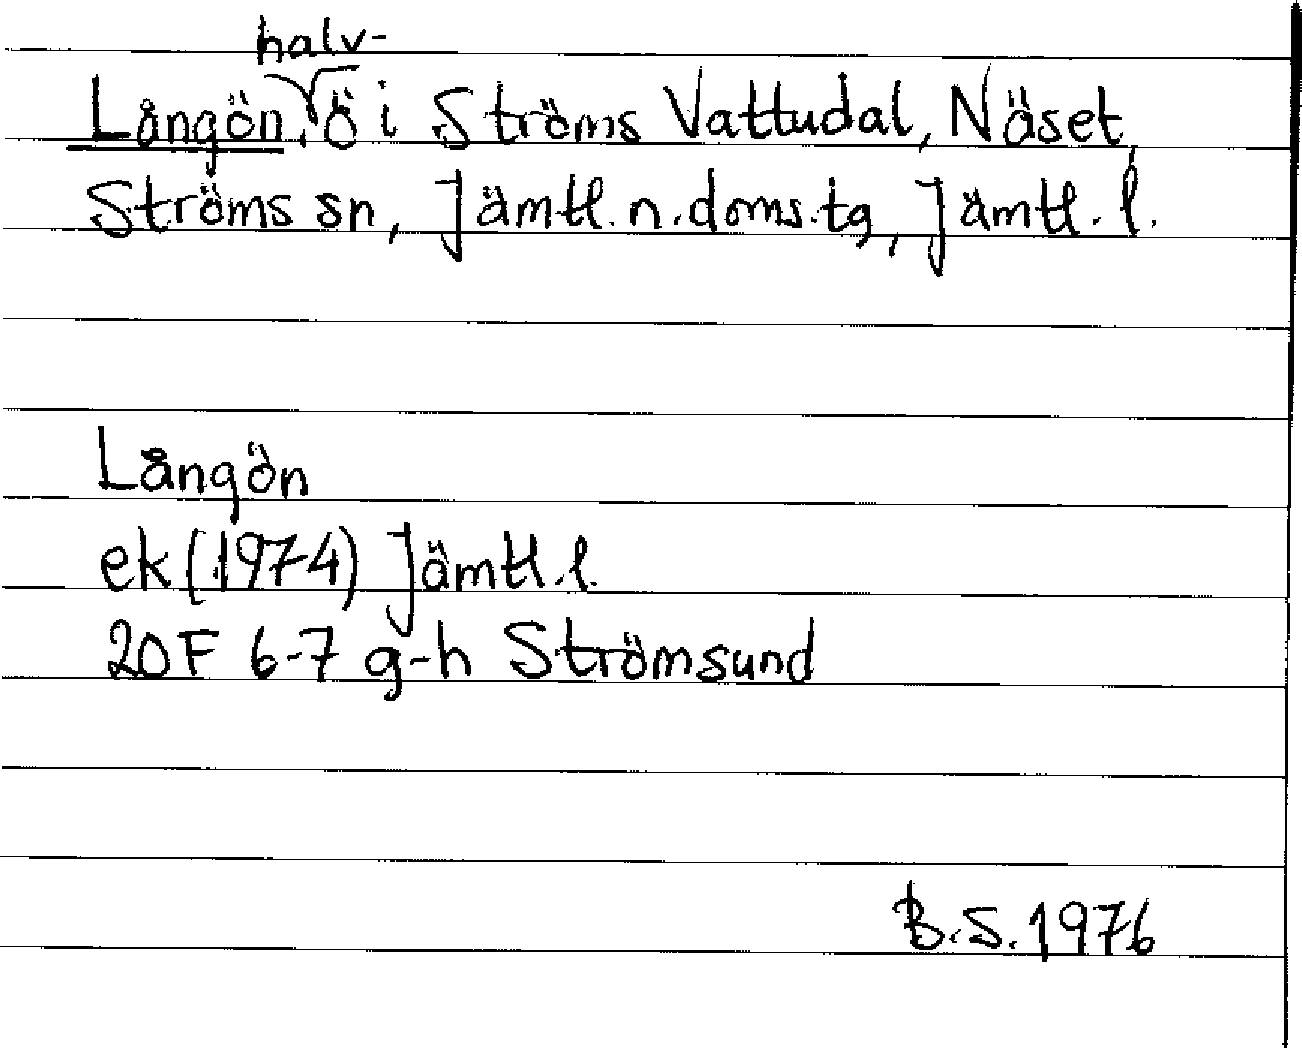 halv-
Långön, ö i Ströms Vattudal, Näset,
Ströms sn, Jämtl. n. doms. tg, Jämtl. l.
Långön
ek (1974) Jämtl. l.
20F 6-7 g-h Strömsund
B.S. 1976